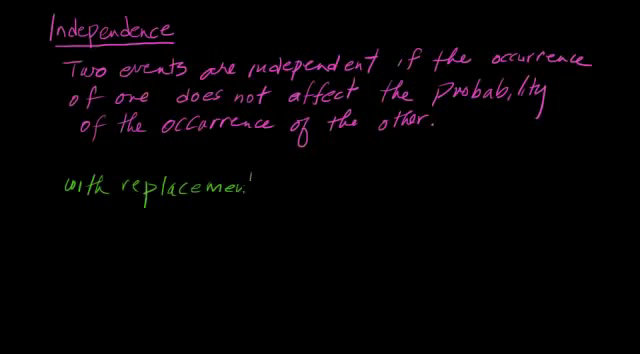 Independence
Two events are independent if the occurrence
of one does not affect the Probability
of the occurrence of the other.
with replacemen